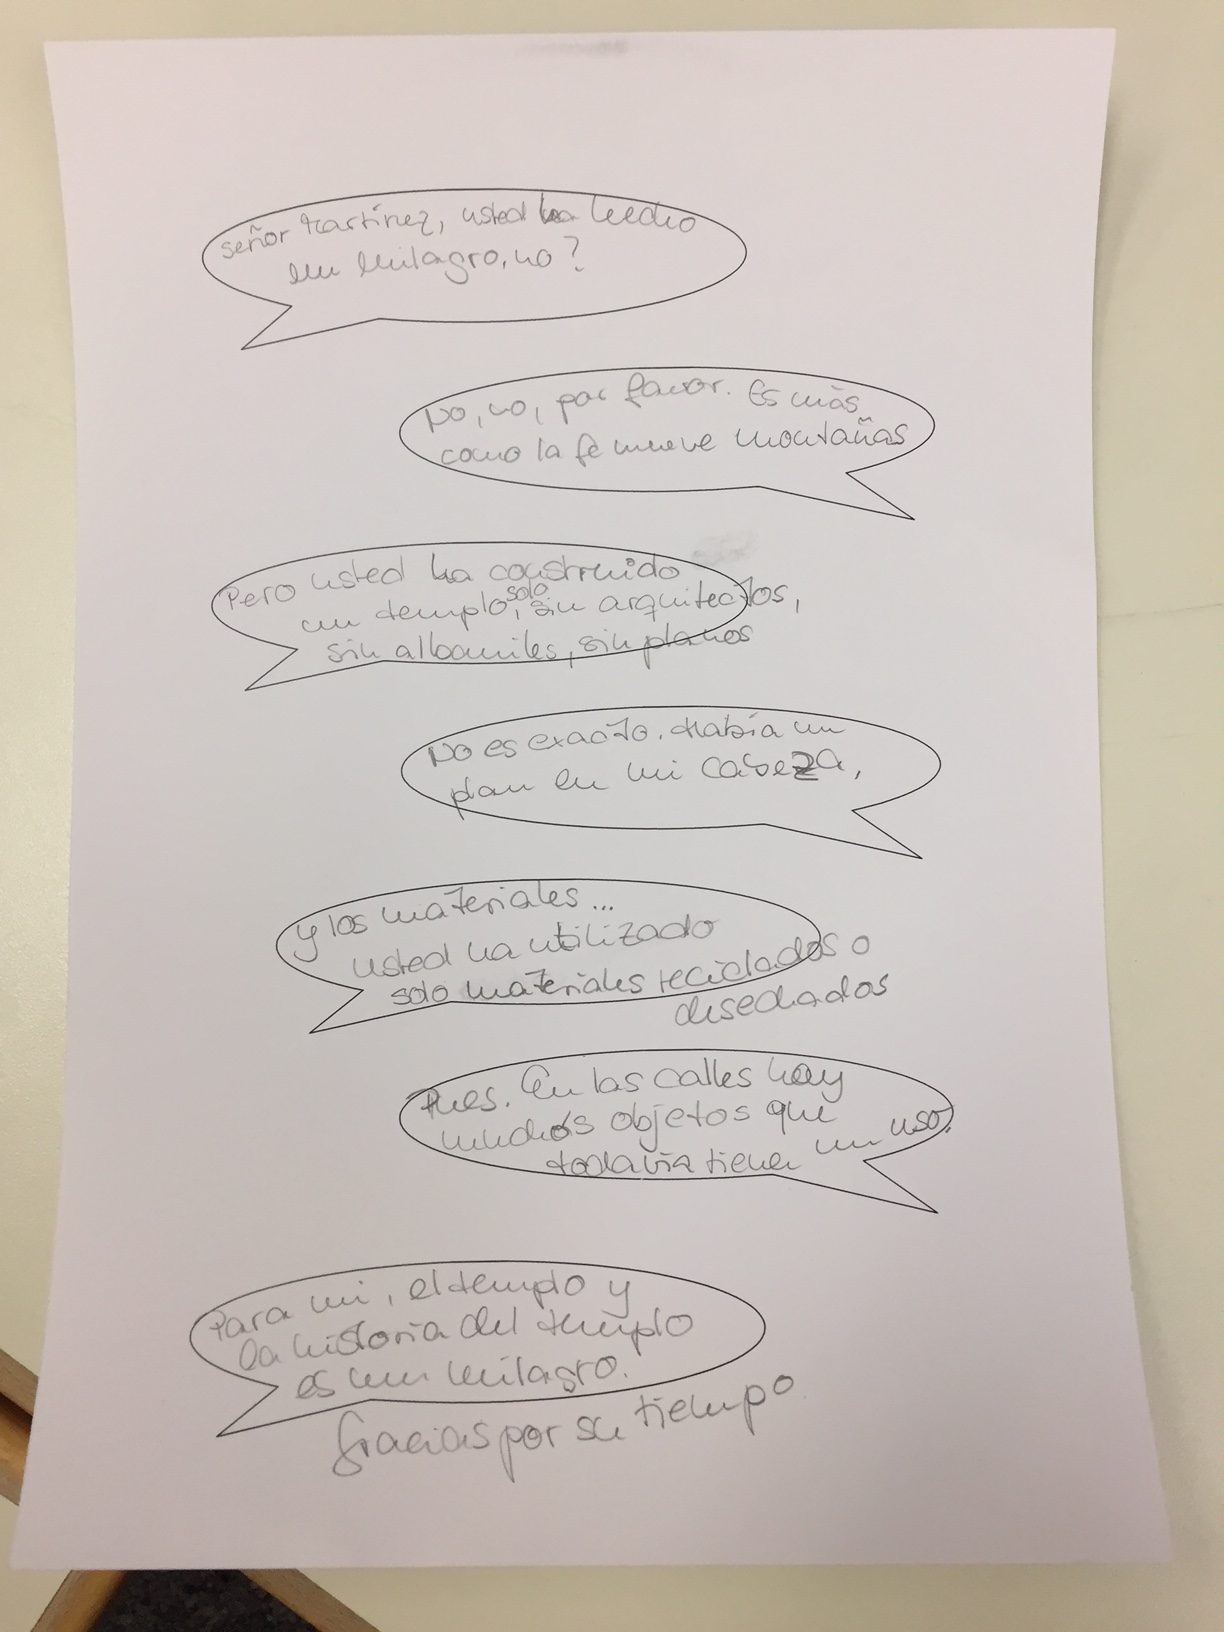 señor Martínez, usted ha hecho
un milagro, no?
No, no, por favor. Es más
como la fe mueve montañas
Pero usted ha construido
un templo, solo, sin arquitectos,
sin albamiles, sin planos
No es exacto. Había un
plan en mi cabeza,
y los materiales...
usted ha utilizado
solo materiales reciclados o
desechados
Pues. En las calles hay
muchos objetos que
todavía tienen un uso.
Para mi, el templo y
la historia del templo
es un milagro.
Gracias por su tiempo.